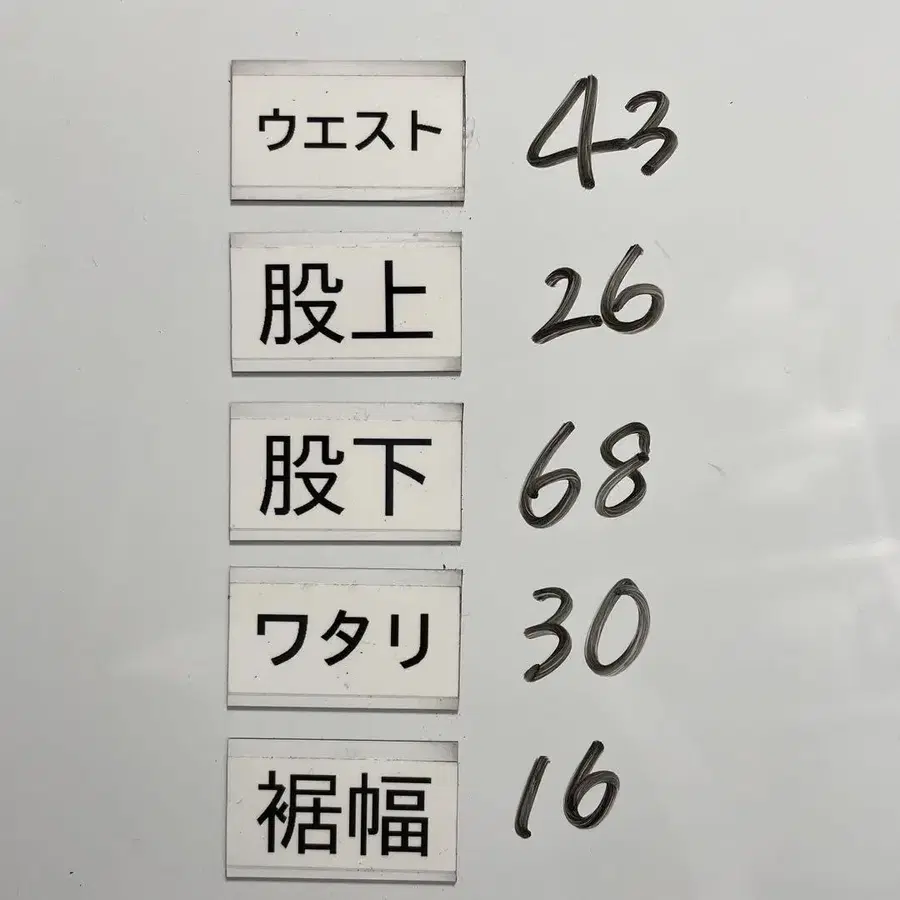 ウエスト 43
股上 26
股下 68
ワタリ 30
裾幅 16